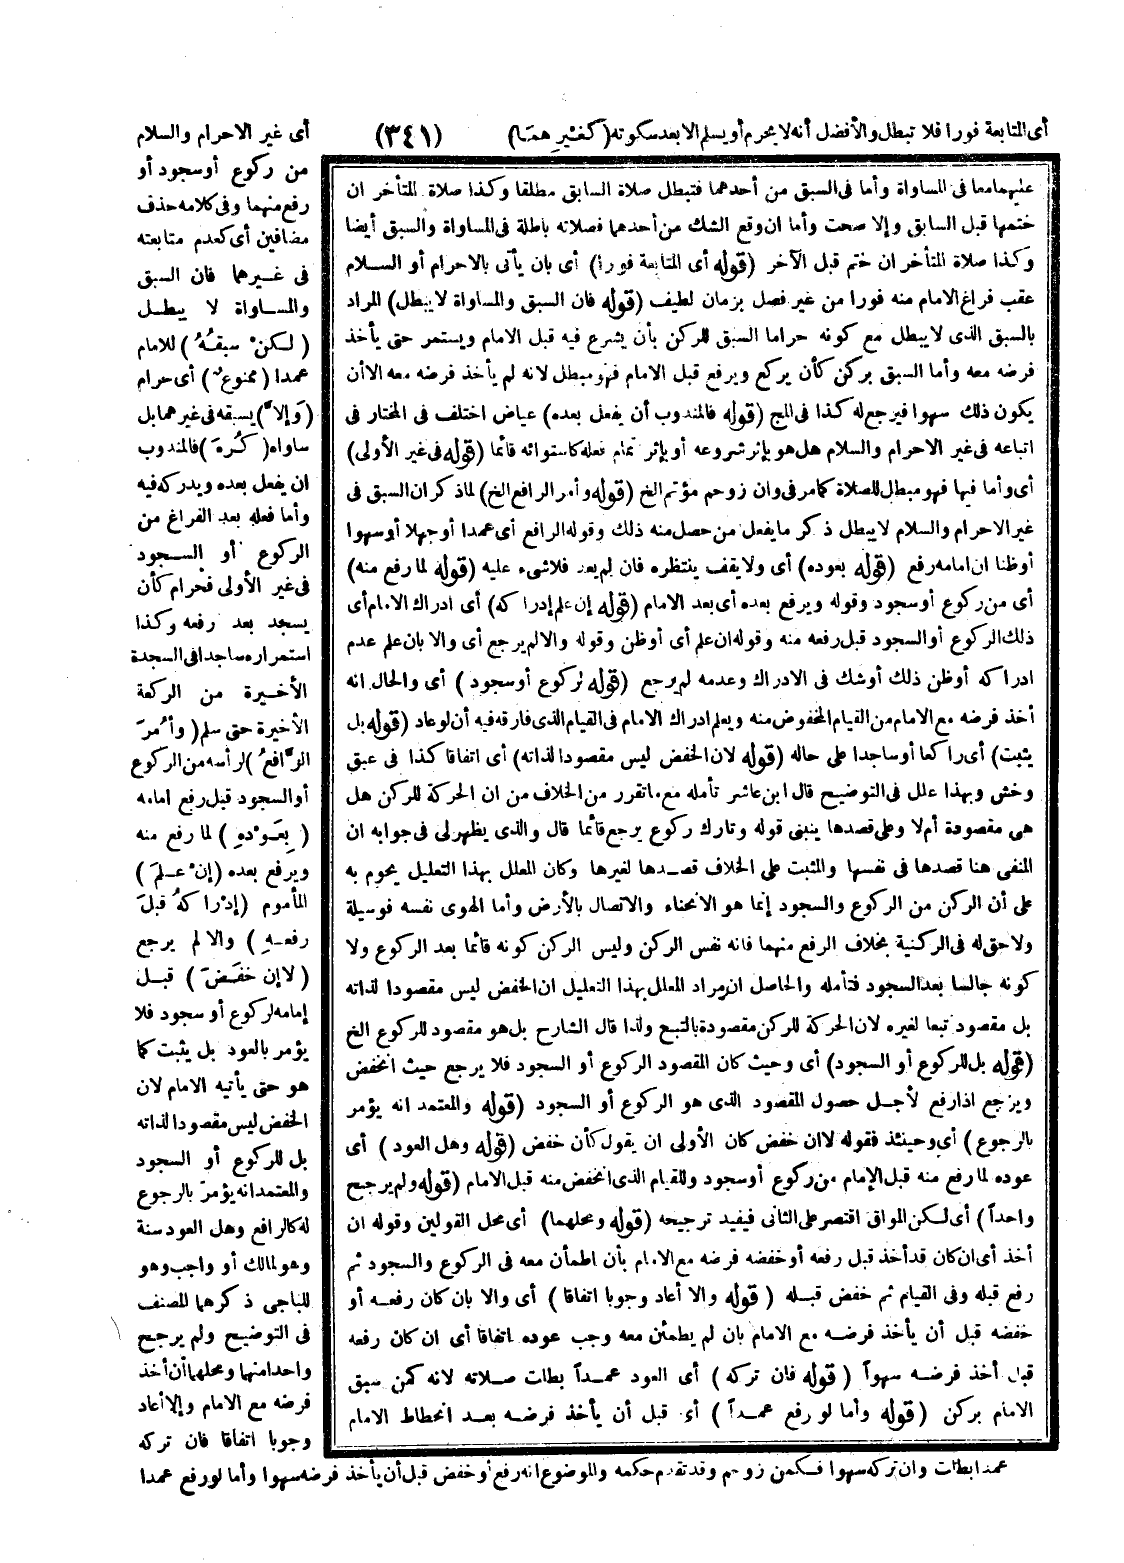 أى المتابعة فورا فلا تبطل والأفضل أنه لا يحرم أو يسلم الا بعد سكوته (كغيرهما) (٣٤١)
أى غير الاحرام والسلام
من ركوع أو سجود أو
رفع منهما وفى كلامه حذف
مضافين أى كعدم متابعته
فى غيرهما فان السبق
والمساواة لا يبطل
(لكن سبقه) للامام
عمدا (ممنوع) أى حرام
(وإلا) يسبقه فى غيرهما بل
ساواه (كره) فالمندوب
ان يفعل بعده ويدركه فيه
وأما فعله بعد الفراغ من
الركوع أو السجود
فى غير الأولى فحرام كأن
يسجد بعد رفعه وكذا
استمراره ساجدا فى السجدة
الأخيرة من الركعة
الأخيرة حتى سلم (وأمر
الرافع) لرأسه من الركوع
أو السجود قبل رفع امامه
(بعوده) لما رفع منه
ويرفع بعده (إن علم)
المأموم (إدراكه قبل
رفعه) والا لم يرجع
(لا إن خفض) قبل
إمامه لركوع أو سجود فلا
يؤمر بالعود بل يثبت كما
هو حتى يأتيه الامام لان
الخفض ليس مقصودا لذاته
بل للركوع أو السجود
والمعتمد انه يؤمر بالرجوع
له كالرافع وهل العود سنة
وهو لمالك أو واجب وهو
للباجى ذكرهما المصنف
فى التوضيح ولم يرجح
واحدا منهما ومحلهما أن أخذ
فرضه مع الامام وإلا أعاد
وجوبا اتفاقا فان تركه
عليهما معا فى المساواة وأما فى السبق من أحدهما فتبطل صلاة السابق مطلقا وكذا صلاة المتأخر ان
ختمها قبل السابق وإلا صحت وأما ان وقع الشك من أحدهما فصلاته باطلة فى المساواة والسبق أيضا
وكذا صلاة المتأخر ان ختم قبل الآخر (قوله أى المتابعة فورا) أى بان يأتى بالاحرام أو السلام
عقب فراغ الامام منه فورا من غير فصل بزمان لطيف (قوله فان السبق والمساواة لا يبطل) المراد
بالسبق الذى لا يبطل مع كونه حراما السبق للركن بأن يشرع فيه قبل الامام ويستمر حتى يأخذ
فرضه معه وأما السبق بركن كأن يركع ويرفع قبل الامام فهو مبطل لانه لم يأخذ فرضه معه الا أن
يكون ذلك سهوا فيرجع له كذا فى المج (قوله فالمندوب أن يفعل بعده) عياض اختلف فى المختار فى
اتباعه فى غير الاحرام والسلام هل هو بإثر شروعه أو بإثر تمام فعله كاستوائه قائما (قوله فى غير الأولى)
أى وأما فيها فهو مبطل للصلاة كما مر فى وان زوحم مؤتم الخ (قوله وأمر الرافع الخ) لما ذكر ان السبق فى
غير الاحرام والسلام لا يبطل ذكر ما يفعل من حصل منه ذلك وقوله الرافع أى عمدا أو جهلا أو سهوا
أو ظنا ان امامه رفع (قوله بعوده) أى ولا يقف ينتظره فان لم يعد فلا شىء عليه (قوله لما رفع منه)
أى من ركوع أو سجود وقوله ويرفع بعده أى بعد الامام (قوله إن علم إدراكه) أى ادراك الامام أى
ذلك الركوع أو السجود قبل رفعه منه وقوله ان علم أى أو ظن وقوله والا لم يرجع أى والا بان علم عدم
ادراكه أو ظن ذلك أو شك فى الادراك وعدمه لم يرجع (قوله لركوع أو سجود) أى والحال انه
أخذ فرضه مع الامام من القيام المخفوض منه ويعلم ادراك الامام فى القيام الذى فارقه فيه أن لو عاد (قوله بل
يثبت) أى راكعا أو ساجدا على حاله (قوله لان الخفض ليس مقصودا لذاته) أى اتفاقا كذا فى عبق
وخش وبهذا علل فى التوضيح قال ابن عاشر تأمله مع ما تقرر من الخلاف من ان الحركة للركن هل
هى مقصودة أم لا وعلى قصدها ينبنى قوله وتارك ركوع يرجع قائما قال والذى يظهر لى فى جوابه ان
المنفى هنا قصدها فى نفسها والمثبت على الخلاف قصدها لغيرها وكان المعلل بهذا التعليل يحوم به
على أن الركن من الركوع والسجود إنما هو الانحناء والاتصال بالأرض وأما الهوى نفسه فوسيلة
ولا حق له فى الركنية بخلاف الرفع منهما فانه نفس الركن وليس الركن كونه قائما بعد الركوع ولا
كونه جالسا بعد السجود فتأمله والحاصل ان مراد المعلل بهذا التعليل ان الخفض ليس مقصودا لذاته
بل مقصود تبعا لغيره لان الحركة للركن مقصودة بالتبع ولذا قال الشارح بل هو مقصود للركوع الخ
(قوله بل للركوع أو السجود) أى وحيث كان المقصود الركوع أو السجود فلا يرجع حيث انخفض
ويرجع اذا رفع لأجل حصول المقصود الذى هو الركوع أو السجود (قوله والمعتمد انه يؤمر
بالرجوع) أى وحينئذ فقوله لا ان خفض كان الأولى ان يقول كأن خفض (قوله وهل العود) أى
عوده لما رفع منه قبل الإمام من ركوع أو سجود وللقيام الذى انخفض منه قبل الامام (قوله ولم يرجح
واحداً) أى لكن المواق اقتصر على الثانى فيفيد ترجيحه (قوله ومحلهما) أى محل القولين وقوله ان
أخذ أى ان كان قد أخذ قبل رفعه أو خفضه فرضه مع الامام بأن اطمأن معه فى الركوع والسجود ثم
رفع قبله وفى القيام ثم خفض قبله (قوله والا أعاد وجوبا اتفاقا) أى والا بان كان رفعه أو
خفضه قبل أن يأخذ فرضه مع الامام بان لم يطمئن معه وجب عوده اتفاقا أى ان كان رفعه
قبل أخذ فرضه سهواً (قوله فان تركه) أى العود عمداً بطلت صلاته لانه كمن سبق
الامام بركن (قوله وأما لو رفع عمداً) أى قبل أن يأخذ فرضه بعد انحطاط الامام
عمدا بطلت وان تركه سهوا فكمن زوحم وقد تقدم حكمه والموضوع انه رفع أو خفض قبل أن يأخذ فرضه سهوا وأما لو رفع عمدا